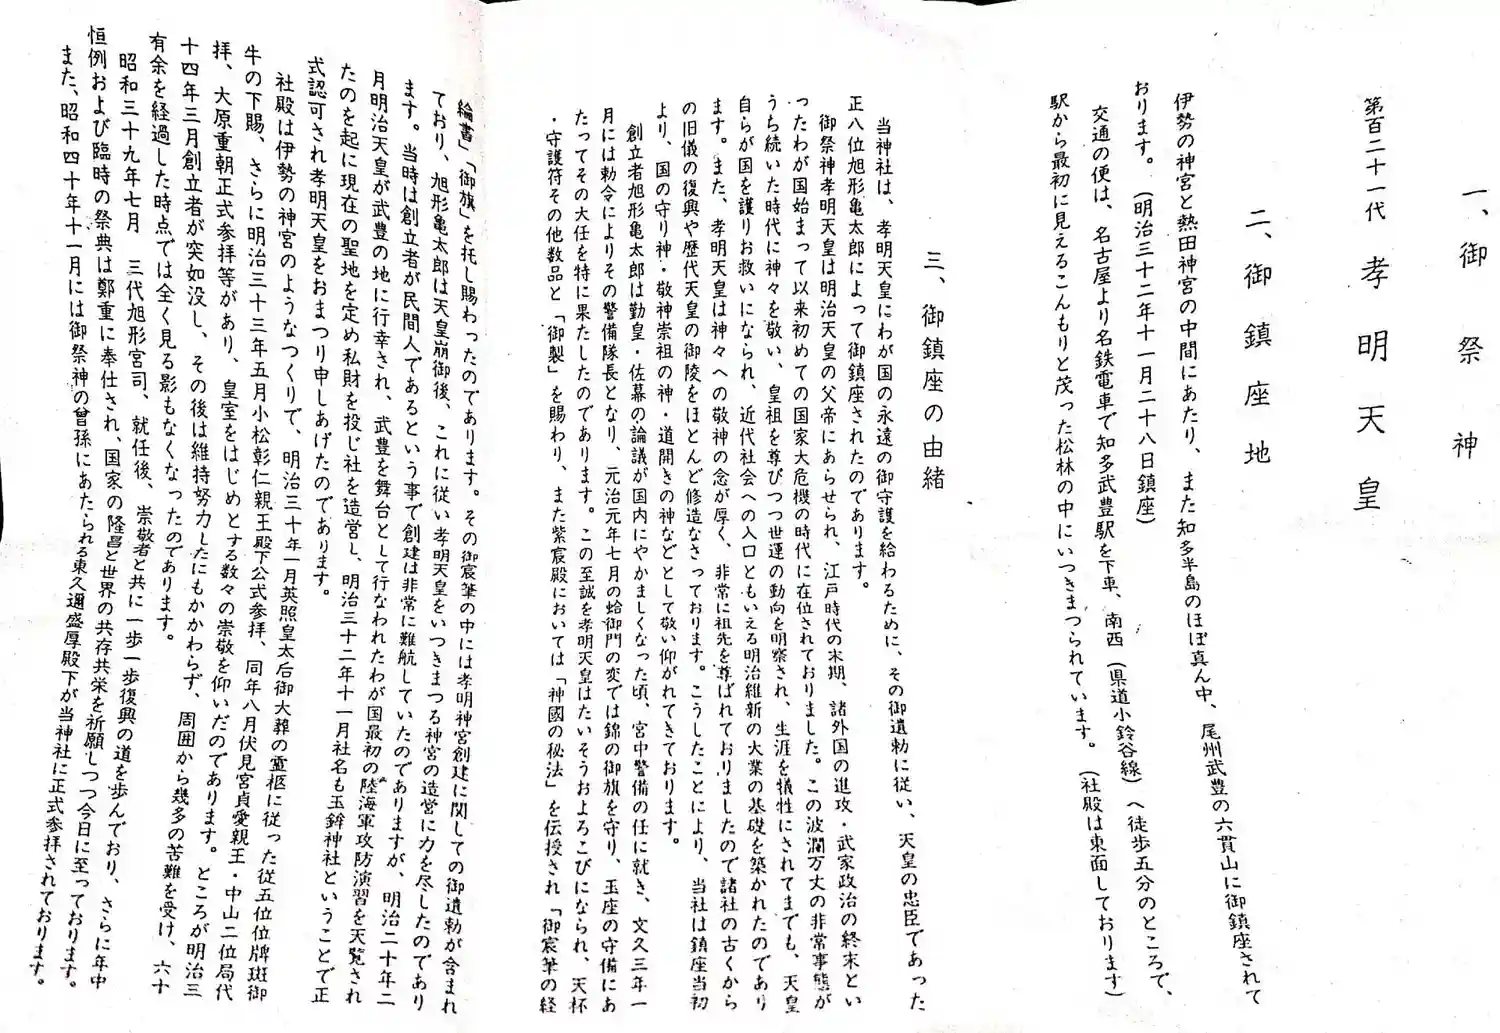 一、御祭神
第百二十一代 孝明天皇
二、御鎮座地
伊勢の神宮と熱田神宮の中間にあたり、また知多半島のほぼ真ん中、尾州武豊の六貫山に御鎮座されて
おります。(明治三十二年十一月二十八日鎮座)
交通の便は、名古屋より名鉄電車で知多武豊駅を下車、南西(県道小鈴谷線)へ徒歩五分のところで、
駅から最初に見えるこんもりと茂った松林の中にいつきまつられています。(社殿は東面しております)
三、御鎮座の由緒
当神社は、孝明天皇にわが国の永遠の御守護を給わるために、その御遺勅に従い、天皇の忠臣であった
正八位旭形亀太郎によって御鎮座されたのであります。
御祭神孝明天皇は明治天皇の父帝にあらせられ、江戸時代の末期、諸外国の進攻・武家政治の終末とい
ったわが国始まって以来初めての国家大危機の時代に在位されておりました。この波瀾万丈の非常事態が
うち続いた時代に神々を敬い、皇祖を尊びつつ世運の動向を明察され、生涯を犠牲にされてまでも、天皇
自らが国を護りお救いになられ、近代社会への入口ともいえる明治維新の大業の基礎を築かれたのであり
ます。また、孝明天皇は神々への敬神の念が厚く、非常に祖先を尊ばれておりましたので諸社の古くから
の旧儀の復興や歴代天皇の御陵をほとんど修造なさっております。こうしたことにより、当社は鎮座当初
より、国の守り神・敬神崇祖の神・道開きの神などとして敬い仰がれてきております。
創立者旭形亀太郎は勤皇・佐幕の論議が国内にやかましくなった頃、宮中警備の任に就き、文久三年一
月には勅令によりその警備隊長となり、元治元年七月の蛤御門の変では錦の御旗を守り、玉座の守備にあ
たってその大任を特に果たしたのであります。この至誠を孝明天皇はたいそうおよろこびになられ、天杯
・守護符その他数品と「御製」を賜わり、また紫宸殿においては「神國の秘法」を伝授され「御宸筆の経
綸書」「御旗」を托し賜わったのであります。その御宸筆の中には孝明神宮創建に関しての御遺勅が含まれ
ており、旭形亀太郎は天皇崩御後、これに従い孝明天皇をいつきまつる神宮の造営に力を尽したのであり
ます。当時は創立者が民間人であるという事で創建は非常に難航していたのでありますが、明治二十年二
月明治天皇が武豊の地に行幸され、武豊を舞台として行なわれたわが国最初の陸海軍攻防演習を天覧され
たのを起に現在の聖地を定め私財を投じ社を造営し、明治三十二年十一月社名も玉鉾神社ということで正
式認可され孝明天皇をおまつり申しあげたのであります。
社殿は伊勢の神宮のようなつくりで、明治三十年一月英照皇太后御大葬の霊柩に従った従五位位牌斑御
牛の下賜、さらに明治三十三年五月小松彰仁親王殿下公式参拝、同年八月伏見宮貞愛親王・中山二位局代
拝、大原重朝正式参拝等があり、皇室をはじめとする数々の崇敬を仰いだのであります。ところが明治三
十四年三月創立者が突如没し、その後は維持努力したにもかかわらず、周囲から幾多の苦難を受け、六十
有余を経過した時点では全く見る影もなくなったのであります。
昭和三十九年七月 三代旭形宮司、就任後、崇敬者と共に一歩一歩復興の道を歩んでおり、さらに年中
恒例および臨時の祭典は鄭重に奉仕され、国家の隆昌と世界の共存共栄を祈願しつつ今日に至っております。
また、昭和四十年十一月には御祭神の曾孫にあたられる東久邇盛厚殿下が当神社に正式参拝されております。